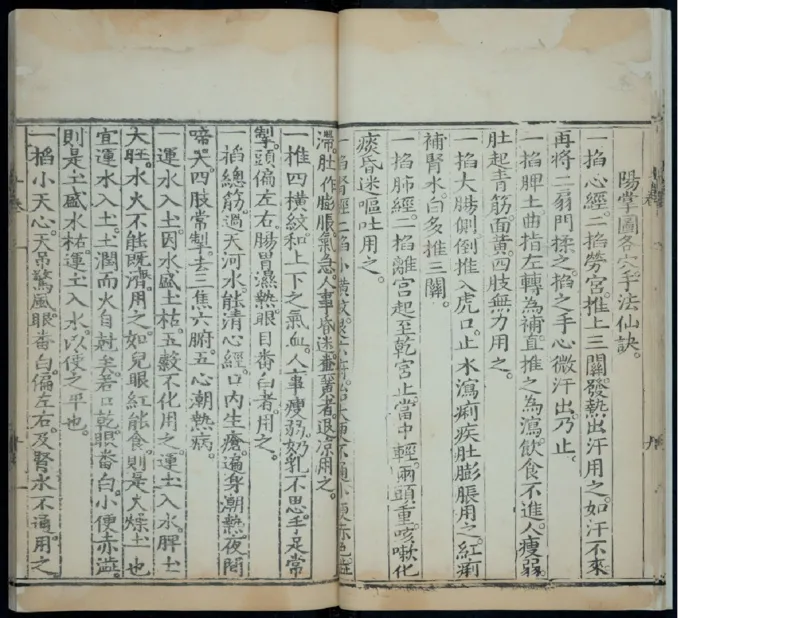 陽掌圖各穴手法仙訣。
一掐心經。二掐勞宮。推上三關。發熱出汗用之。如汗不來
再將二扇門揉之。掐之手心微汗出。乃止。
一掐脾土。曲指左轉為補。直推之為瀉。飲食不進。人瘦弱。
肚起青筋。面黃。四肢無力用之。
一掐大腸。側倒推入虎口。止水瀉痢疾。肚膨脹用之。紅痢
補腎水。白多推三關。
一掐肺經。二掐離宮起至乾宮止。當中輕。兩頭重。咳嗽化
痰。昏迷嘔吐用之。
一掐腎經。二掐小橫紋。退六府。治大便不通。小便赤色澁
滯。肚作膨脹。氣急。人事昏迷。糞黃者。退涼用之。
一推四橫紋。和上下之氣血。人事瘦弱。奶乳不思。手足常
掣。頭偏左右。腸胃濕熱。眼目番白者。用之。
一掐總筋。過天河水。能清心經。口內生瘡。遍身潮熱。夜間
啼哭。四肢常掣。去三焦六腑。五心潮熱病。
一運水入土。因水盛土枯。五穀不化用之。運土入水。脾土
太旺。水火不能既濟。用之。如兒眼紅能食。則是火燥土也
宜運水入土。土潤而火自尅矣。若口乾。眼番白。小便赤澁。
則是土盛水枯。運土入水。以使之平也。
一掐小天心。天吊驚風。眼番白偏左右。及腎水不通。用之。